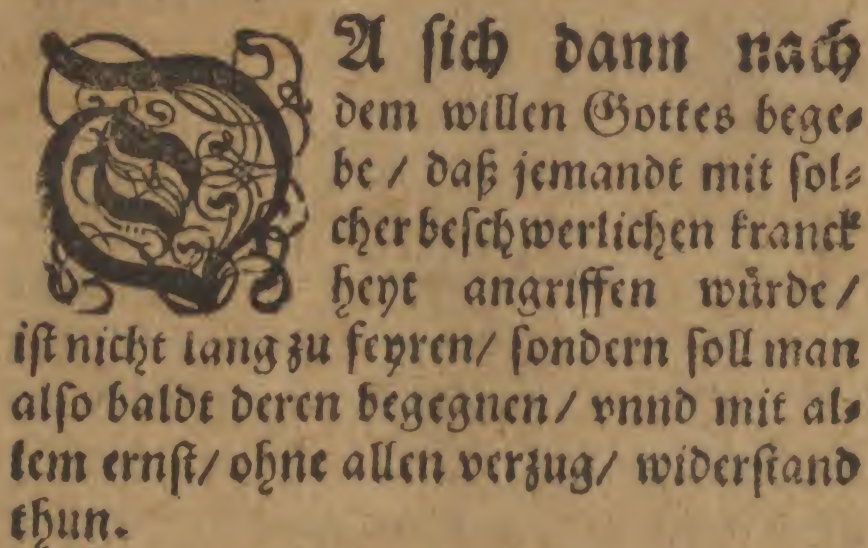 DA ſich dann nach
dem willen Gottes bege⸗
be / daß jemandt mit ſol⸗
cher beſchwerlichen kranck
heyt angriffen würde /
iſt nicht lang zu feyren / ſondern ſoll man
alſo baldt deren begegnen / vnnd mit al⸗
lem ernſt / ohne allen verzug / widerſtand
thun.